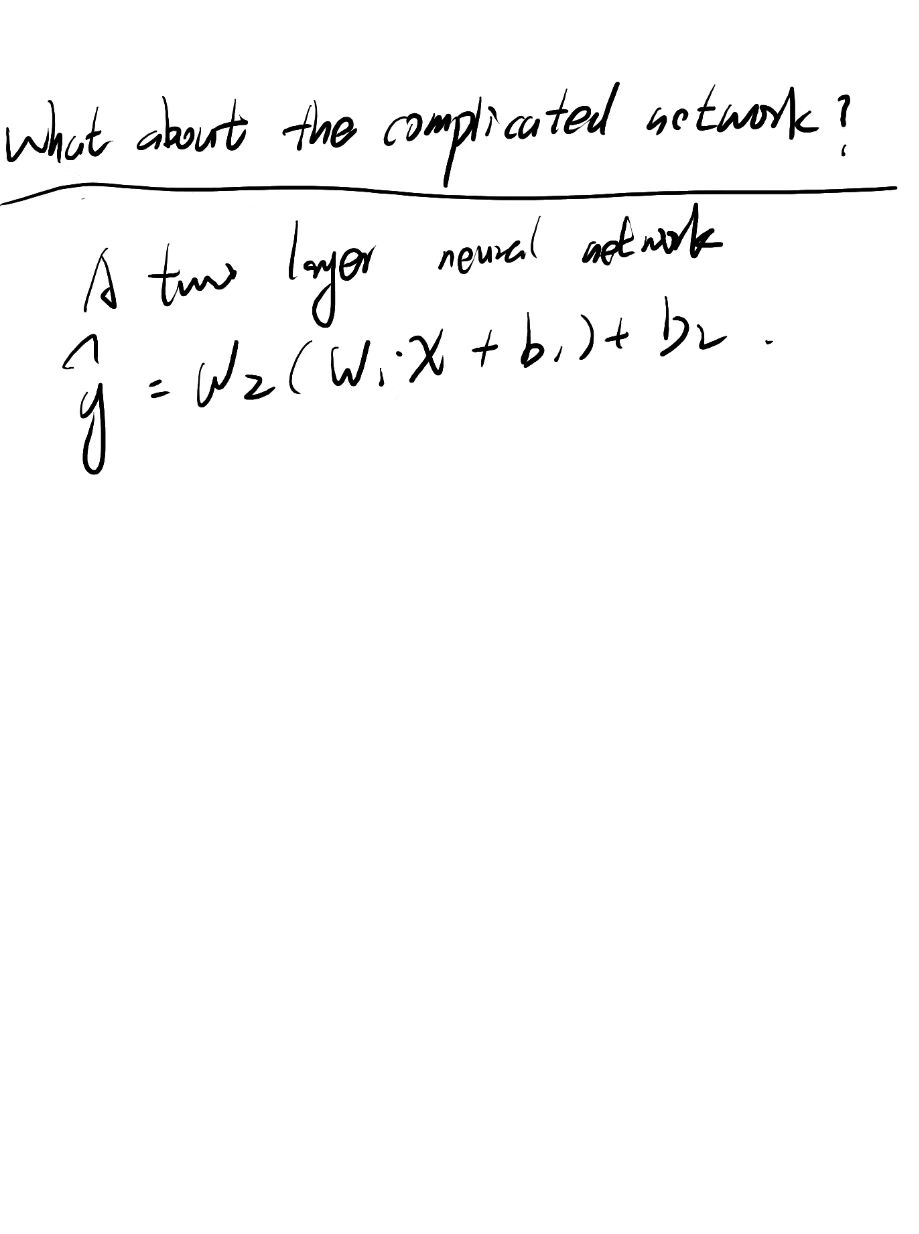 What about the complicated network?
A two layer neural network
ŷ = W₂(W₁·X + b₁) + b₂.